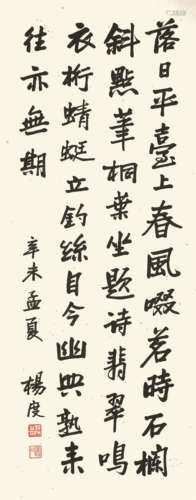 落日平臺上春風啜茗時石欄
斜點筆桐葉坐題诗翡翠鳴
衣桁蜻蜓立釣絲自今幽興熟来
往亦無期
辛未孟夏 楊度